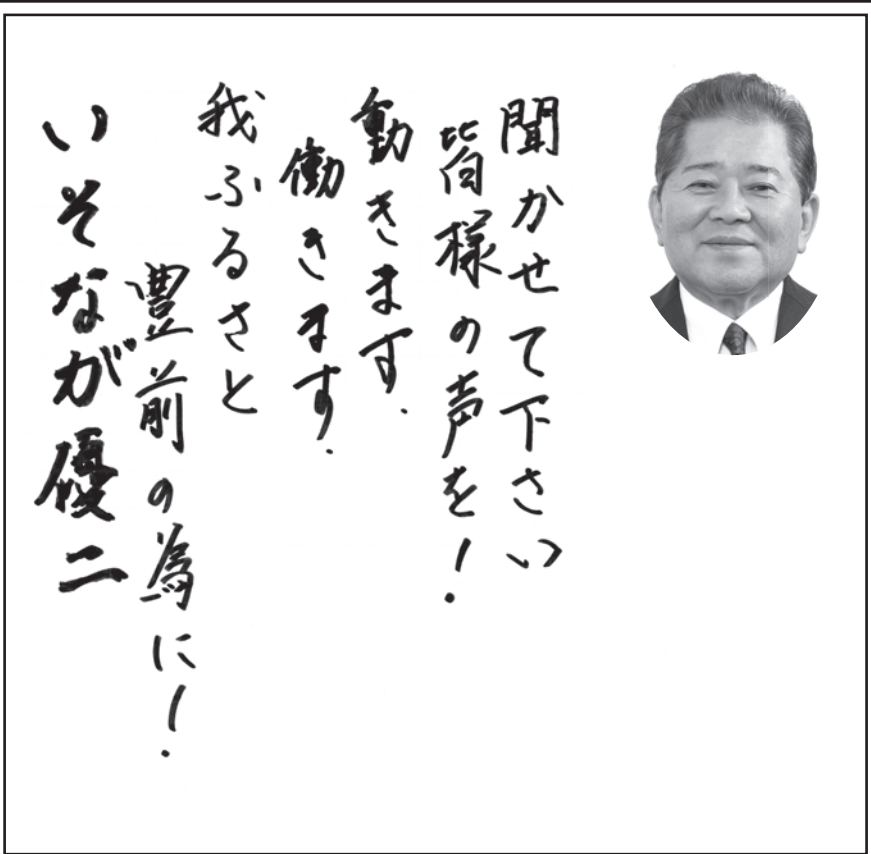 聞かせて下さい
皆様の声を!
動きます.
働きます.
我ふるさと
豊前の為に!
いそなが優二